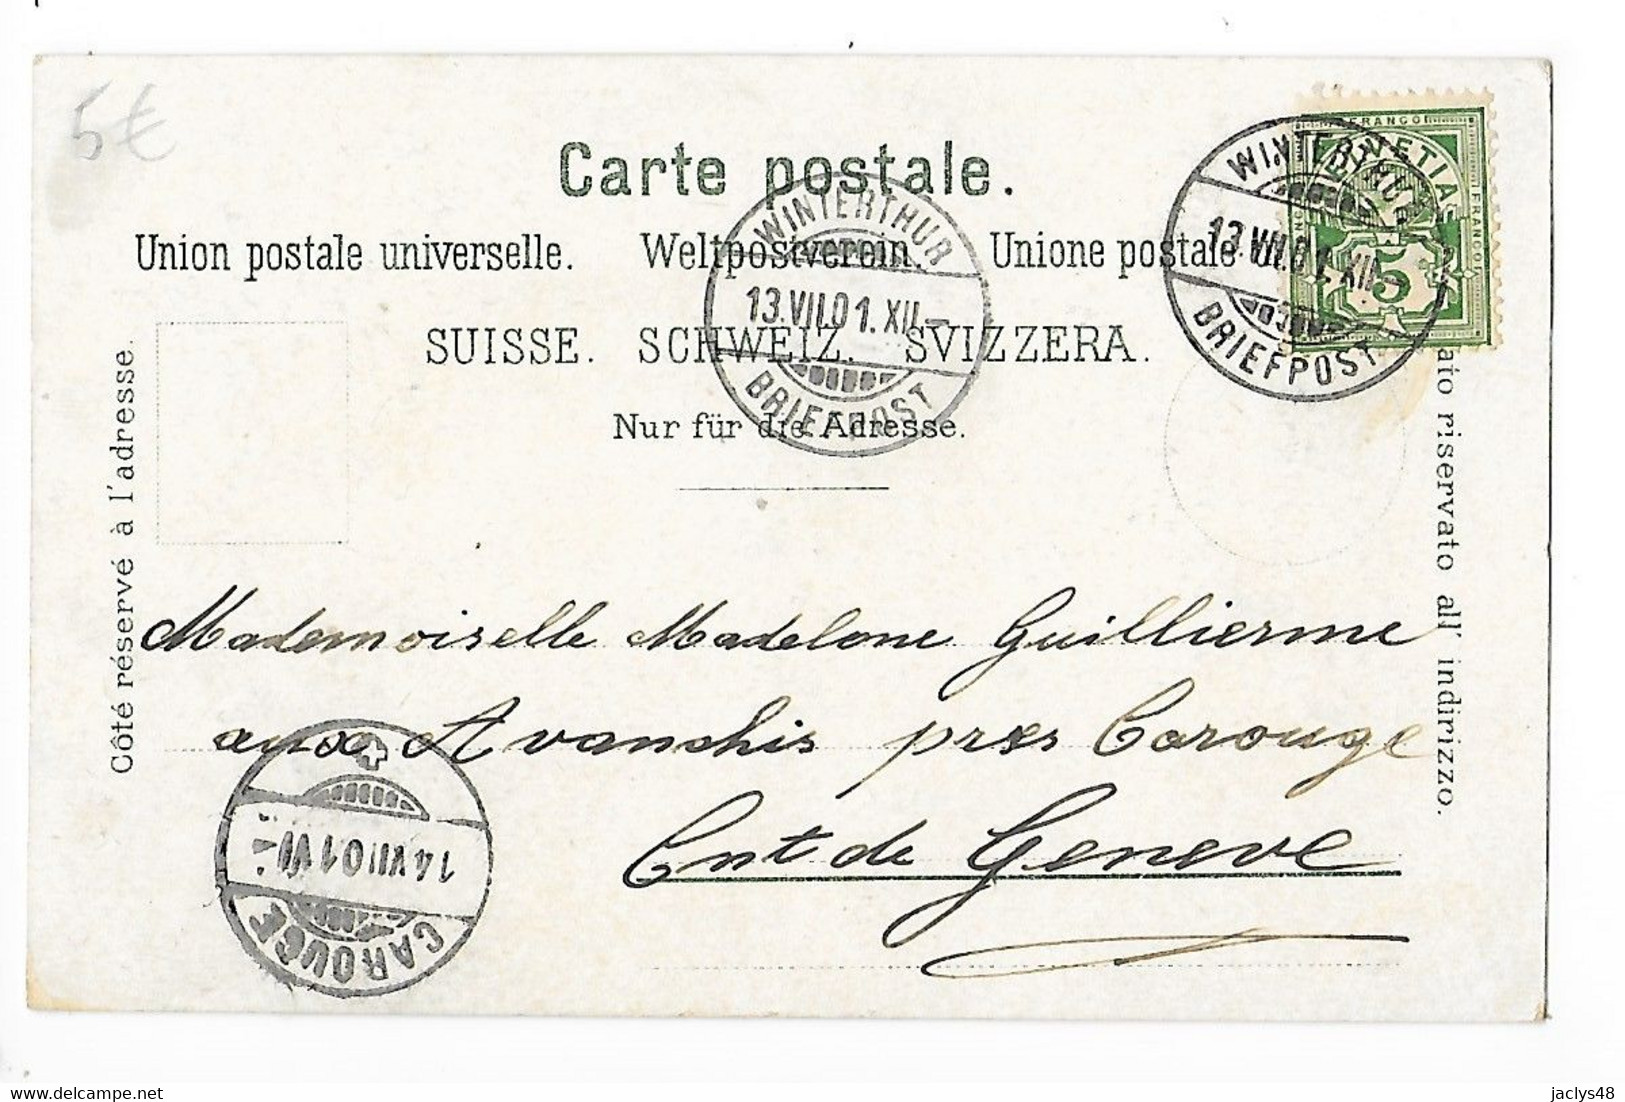 5€
Carte postale.
Union postale universelle. Weltpostverein. Unione postale
SUISSE. SCHWEIZ. SVIZZERA.
Nur für die Adresse.
Côté réservé à l'adresse.
riservato all' indirizzo.
FRANCO
FRANCO
5
WINTERTHUR
13.VII.01.XII-
BRIEFPOST
WINTERTHUR
13.VII.01.XII-
BRIEFPOST
Mademoiselle Madelone Guillierme
aux Avanchis pres Carouge
Cnt de Geneve
14.VII.01.VI-
CAROUGE
jaclys48